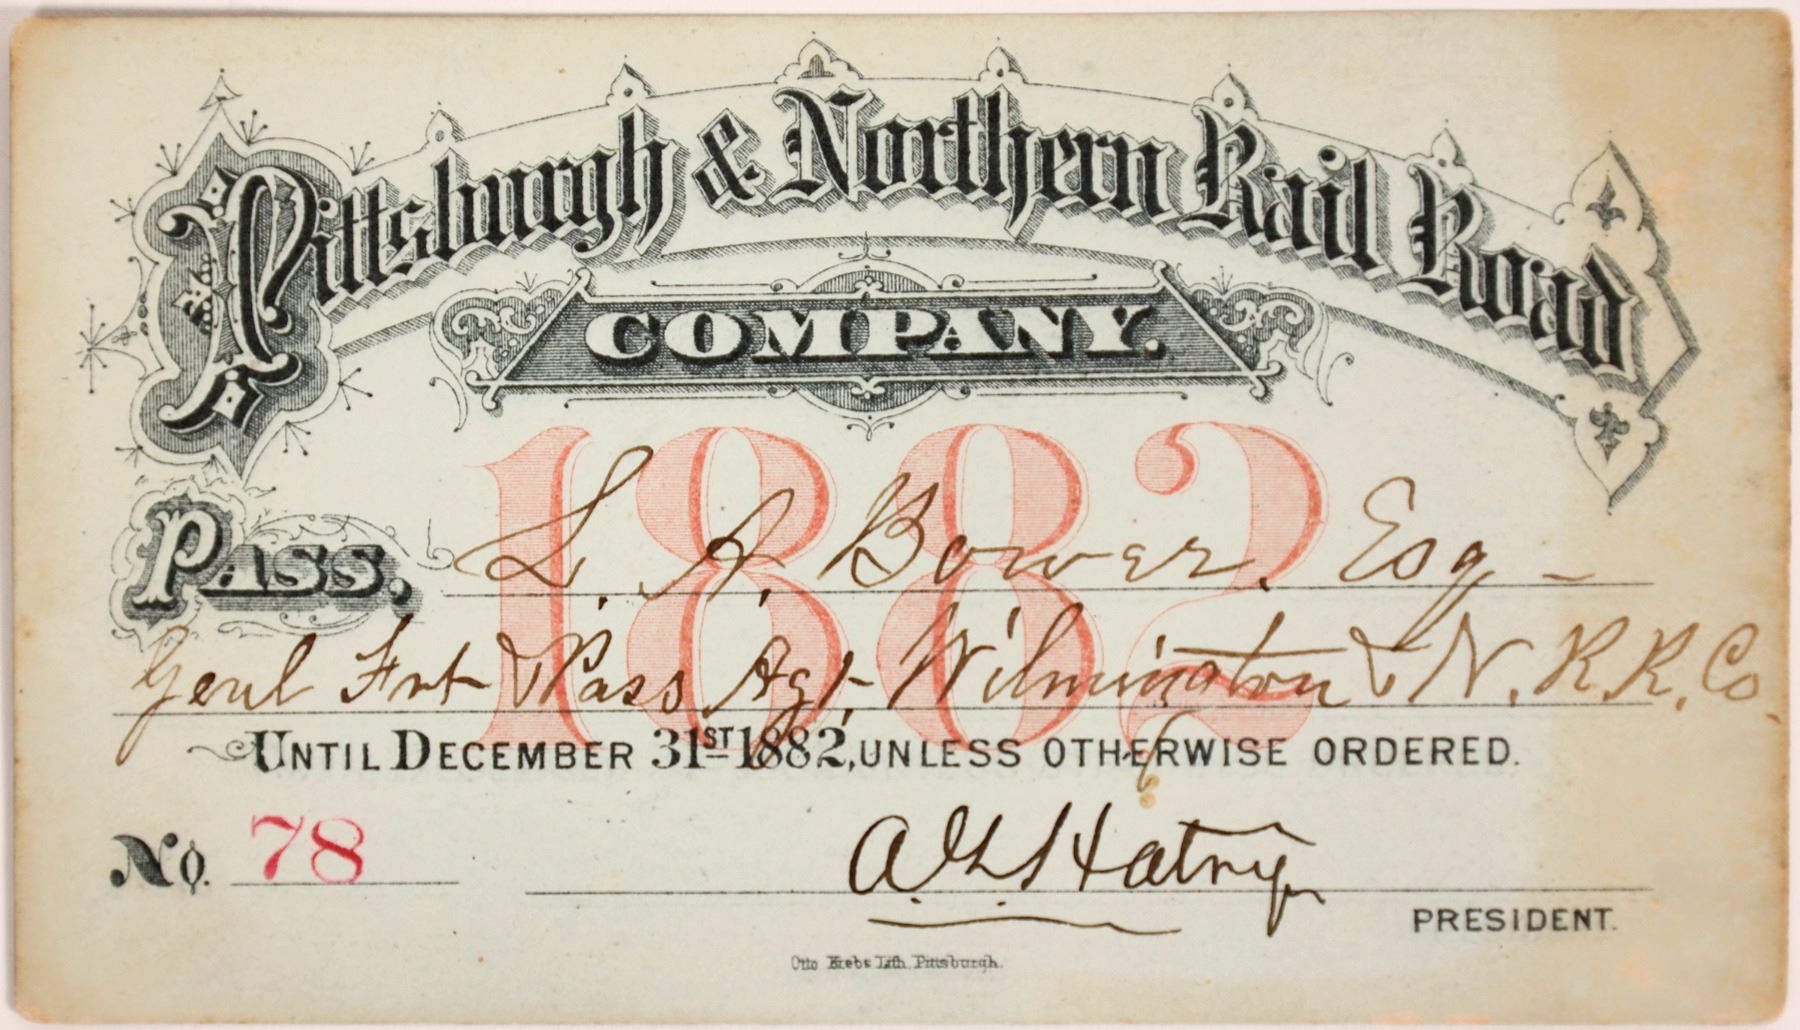 Pittsburgh & Northern Rail Road
COMPANY.
1882
PASS, L. A. Bower. Esq -
Genl Frt & Pass Agt. Wilmington & N. R. R. Co.
UNTIL DECEMBER 31ST 1882, UNLESS OTHERWISE ORDERED.
No. 78
PRESIDENT.
Otto Krebs Lith. Pittsburgh.